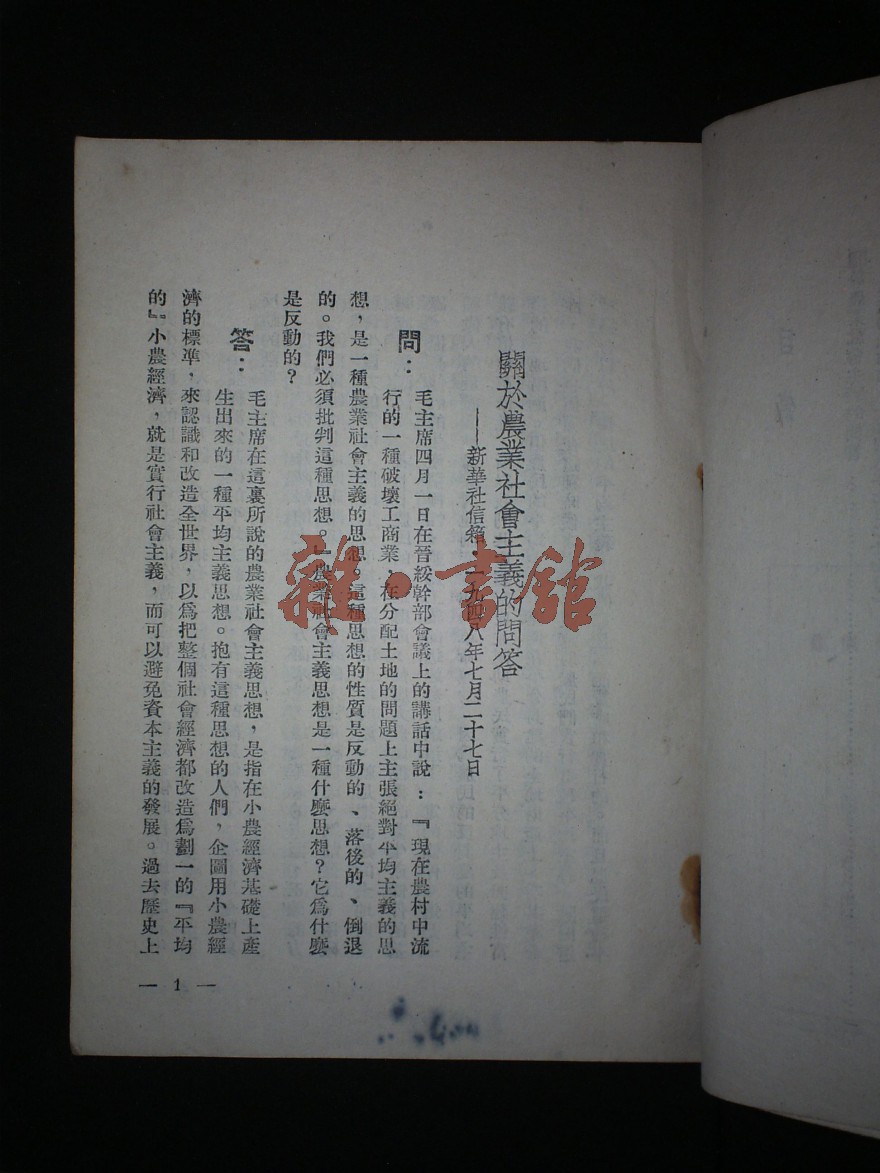 關於農業社會主義的問答
——新華社信箱，一九四八年七月二十七日
問：
毛主席四月一日在晉綏幹部會議上的講話中說：『現在農村中流
行的一種破壞工商業，在分配土地的問題上主張絕對平均主義的思
想，是一種農業社會主義的思想。這種思想的性質是反動的、落後的、倒退
的。我們必須批判這種思想。』農業社會主義思想是一種什麼思想？它爲什麼
是反動的？
答：
毛主席在這裏所說的農業社會主義思想，是指在小農經濟基礎上產
生出來的一種平均主義思想。抱有這種思想的人們，企圖用小農經
濟的標準，來認識和改造全世界，以爲把整個社會經濟都改造爲劃一的『平均
的』小農經濟，就是實行社會主義，而可以避免資本主義的發展。過去歷史上
— 1 —
雜·書館